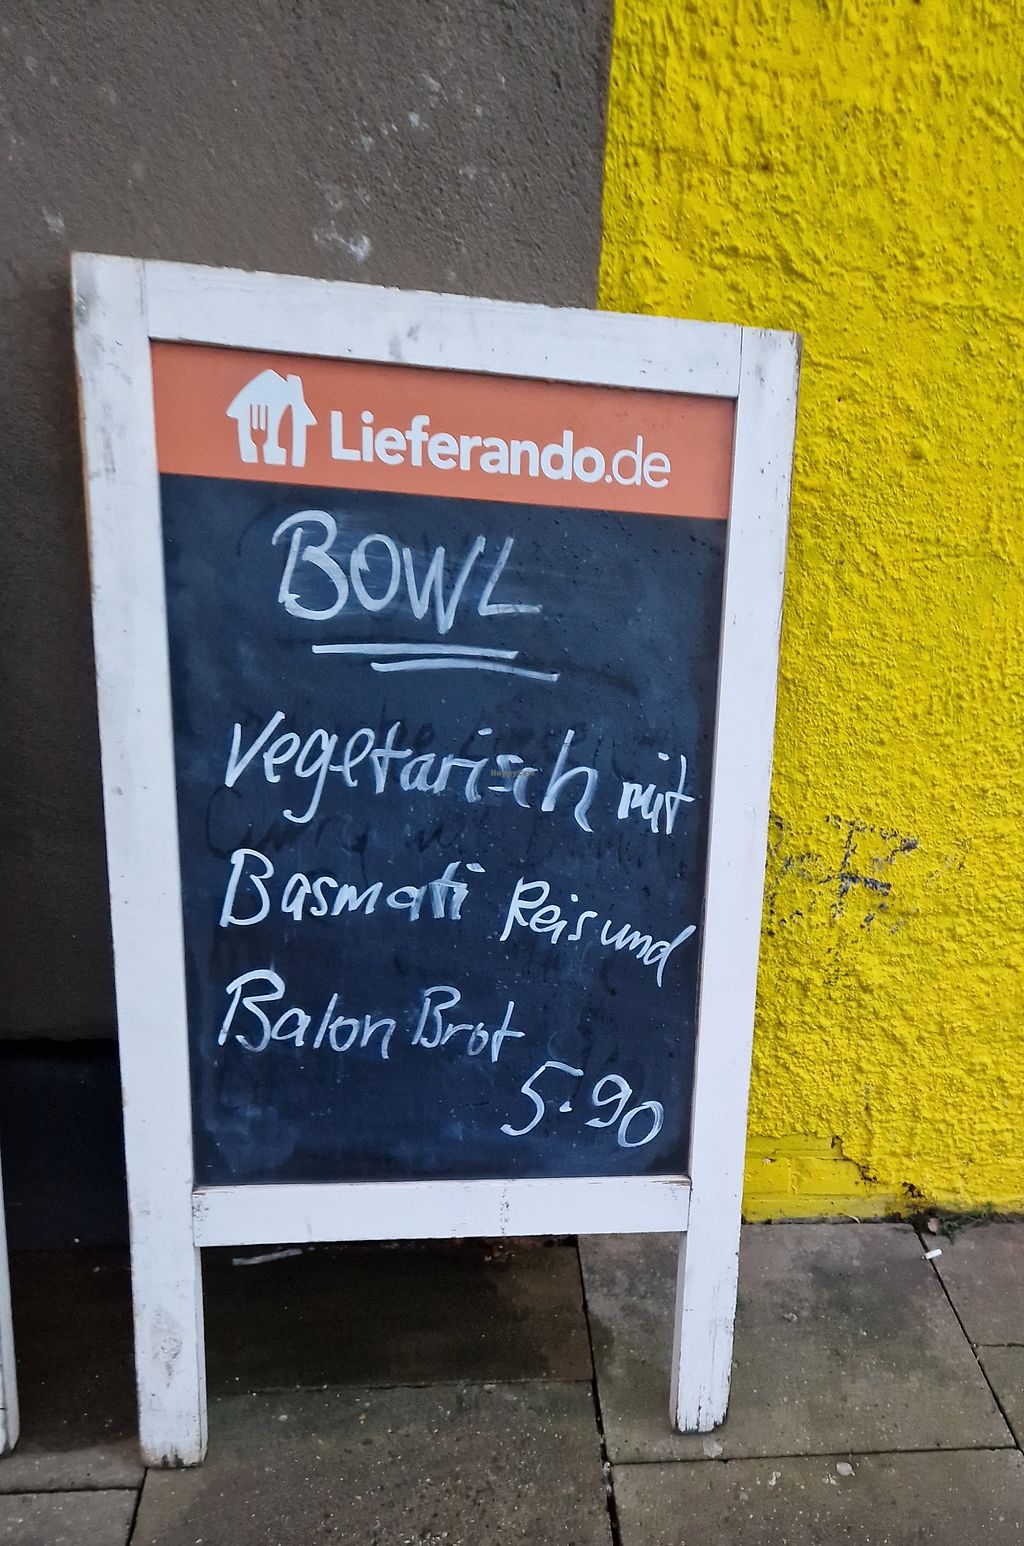 Lieferando.de
BOWL
Vegetarisch mit
Basmati Reis und
Balon Brot
5.90
HappyCow